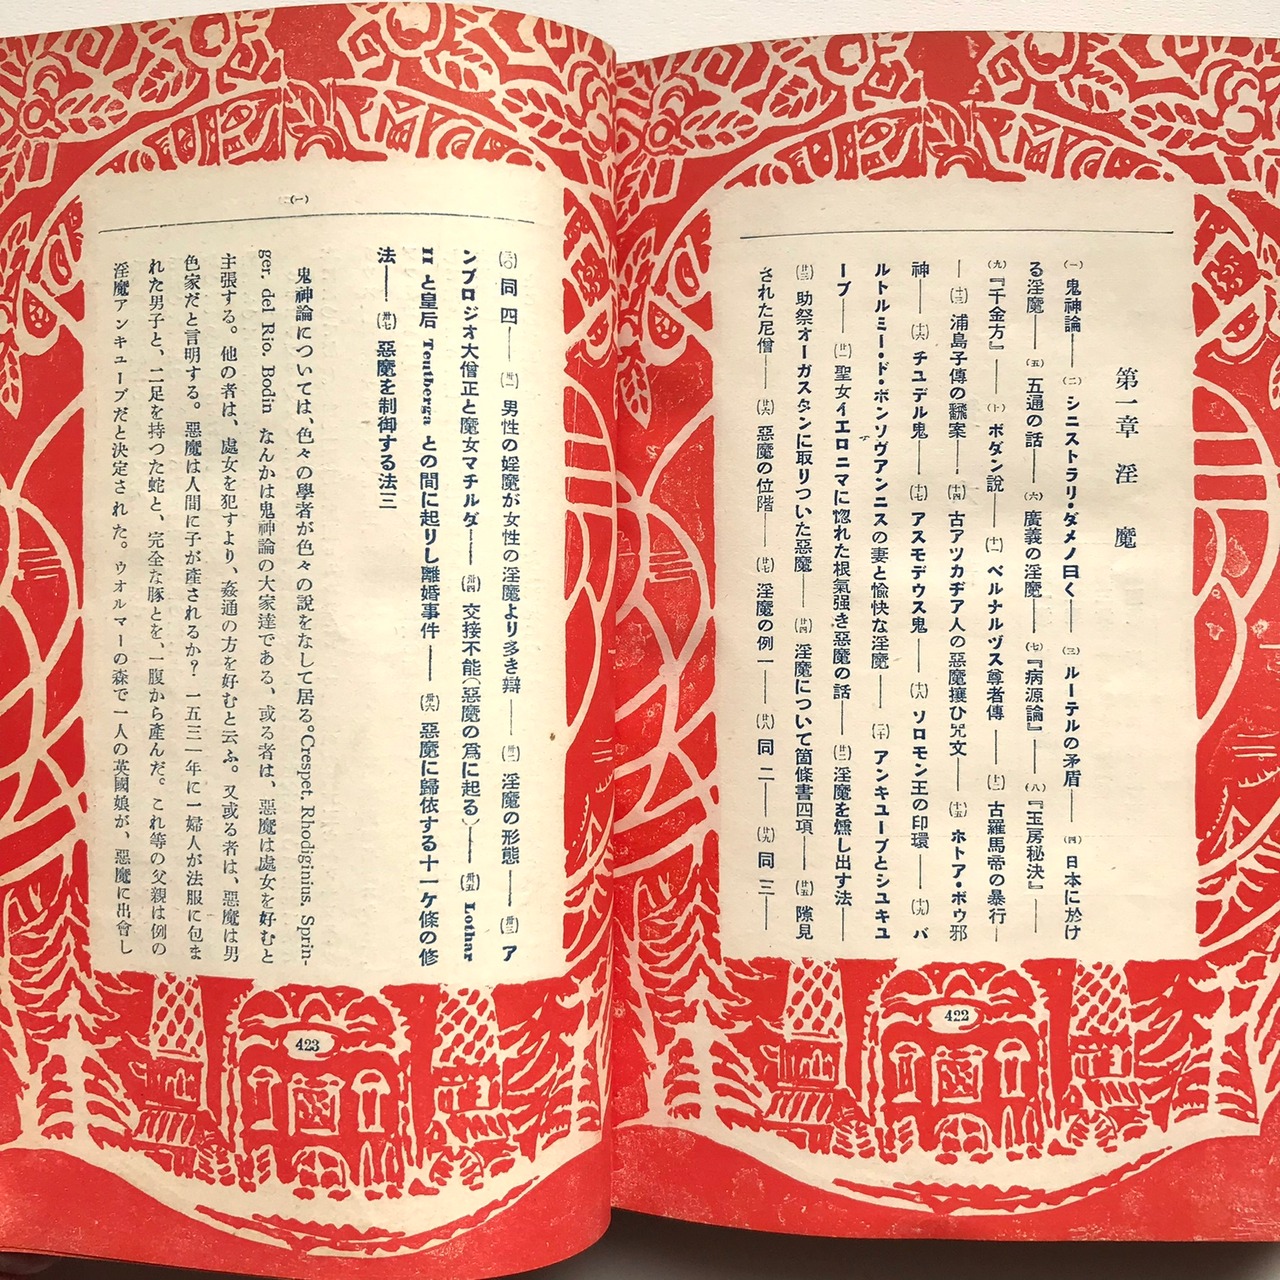 第一章 淫魔
㈠ 鬼神論――㈡ シニストラリ・ダメノ曰く――㈢ ルーテルの矛盾――㈣ 日本に於け
る淫魔――㈤ 五通の話――㈥ 廣義の淫魔――㈦『病源論』――㈧『玉房秘決』――
㈨『千金方』――㈩ ボダン說――(十一) ベルナルヅス尊者傳――(十二) 古羅馬帝の暴行―
―(十三) 浦島子傳の飜案――(十四) 古アツカヂア人の惡魔攘ひ咒文――(十五) ホトア・ボウ邪
神――(十六) チユデル鬼――(十七) アスモデウス鬼――(十八) ソロモン王の印環――(十九) バ
ルトルミー・ド・ボンソヴアンニスの妻と愉快な淫魔――(二十) アンキユーブとシユキユ
ーブ――(廿一) 聖女イエロニマに惚れた根氣强き惡魔の話――(廿二) 淫魔を燻し出す法――
(廿三) 助祭オーガスタンに取りついた惡魔――(廿四) 淫魔について箇條書四項――(廿五) 隙見
された尼僧――(廿六) 惡魔の位階――(廿七) 淫魔の例一――(廿八) 同二――(廿九) 同三――
422
(三〇) 同四――(卅一) 男性の婬魔が女性の淫魔より多き辯――(卅二) 淫魔の形態――(卅三) ア
ンブロジオ大僧正と魔女マチルダ――(卅四) 交接不能(惡魔の爲に起る)――(卅五) Lothar
II と皇后 Teutberga との間に起りし離婚事件――(卅六) 惡魔に歸依する十一ケ條の修
法――(卅七) 惡魔を制御する法三
(一)
鬼神論については、色々の學者が色々の說をなして居る。Crespet. Rhodiginius. Sprin-
ger. del Rio. Bodin なんかは鬼神論の大家達である、或る者は、惡魔は處女を好むと
主張する。他の者は、處女を犯すより、姦通の方を好むと云ふ。又或る者は、惡魔は男
色家だと言明する。惡魔は人間に子が產されるか？一五三一年に一婦人が法服に包ま
れた男子と、二足を持つた蛇と、完全な豚とを、一腹から產んだ。これ等の父親は例の
淫魔アンキユーブだと決定された。ウオルマーの森で一人の英國娘が、惡魔に出會し
423